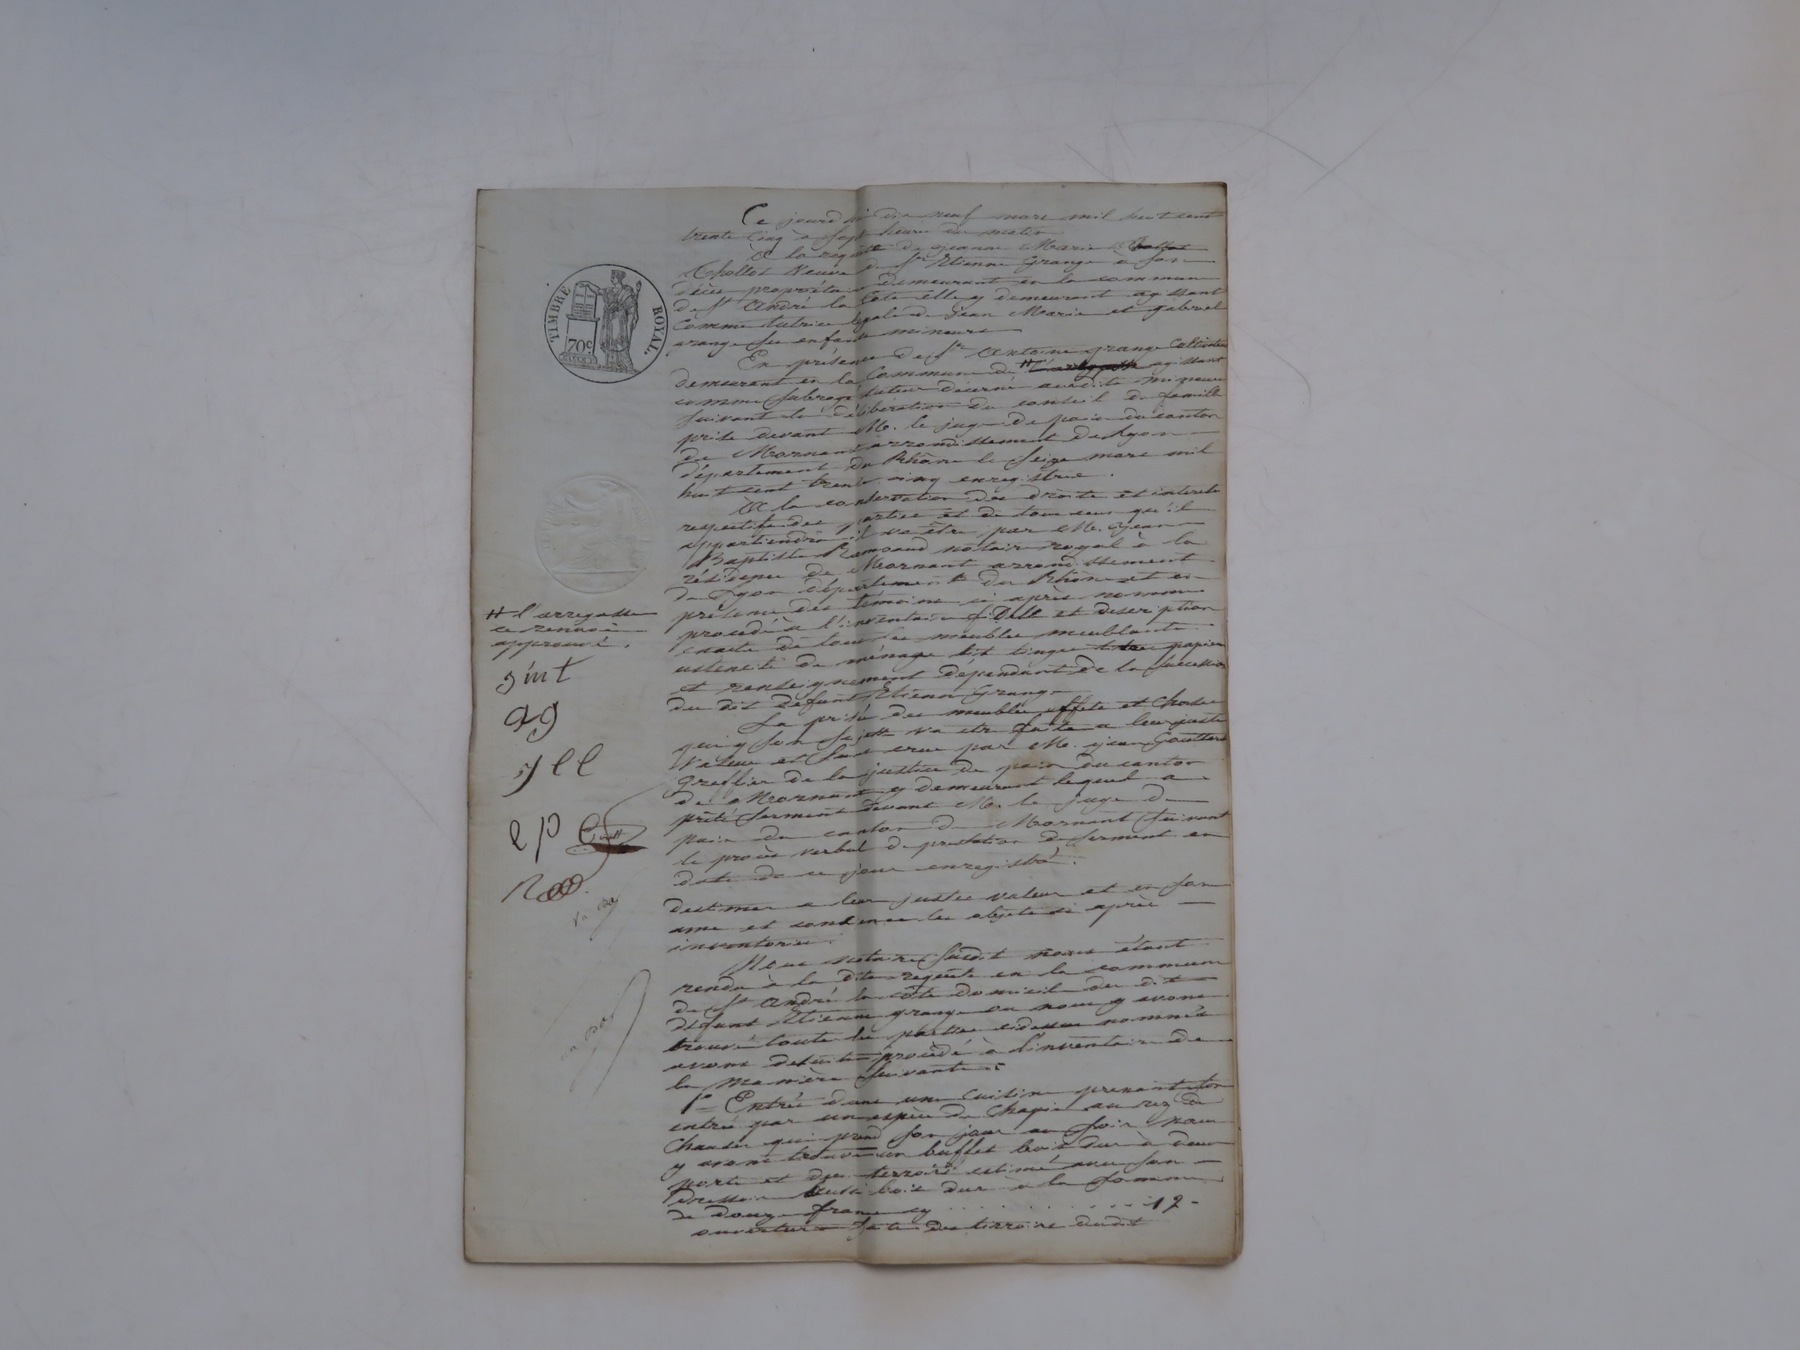 Ce jourd'hui dix neuf mars mil huit cent
trente cinq à sept heures du matin
A la requête de jeanne Marie
Thollot veuve de Sr Etienne Grange à son
décès propriétaire demeurant en la commune
de St André la Cote elle y demeurant agissant
comme tutrice légale de jean Marie et gabriel
grange ses enfants mineurs
En présence de Sr Antoine grange Cultivateur
demeurant en la Commune de # agissant
comme subrogé tuteur décerné auxdits mineurs
suivant la délibération du conseil de famille
prise devant M. le juge de paix du canton
de Mornant arrondissement de Lyon
département du Rhône le seize mars mil
huit cent trente cinq enregistrée.
A la conservation des droits et interets
respectifs des parties et de tous ceux qu'il
appartiendra il va être, par Me. jean
Baptiste notaire royal à la
résidence de Mornant arrondissement
de Lyon département du Rhône et en
présence des témoins ci après nommés
procédé à l'inventaire fidelle et description
exacte de tous les meubles meublants
ustencils de ménage lit linges titres papiers
et renseignement dépendant de la succession
du dit défunt Etienne Grange
La prisée des meubles effets et choses
qui y son sujette va etre faite a leur juste
valeur et sans crue par M. jean
greffier de la justice de paix du canton
de Mornant y demeurant lequel a
prêté serment devant M. le juge de
paix du canton de Mornant suivant
le procès verbal de prestation de serment en
date de ce jour enregistré.
destimer a leur justes valeur et en son
ame et conscience les objets ci après
inventoriés.
Nous notaire susdit nous étant
rendu à la dite requête en la commune
de St André la côte domicile du dit
défunt Etienne grange ou nous y avons
trouvé toute les parties cidessus nommés
avons desuite procédé à l'inventaire de
la manière suivante:
1º Entrés dans une cuisine prenant son
entrée par un espèce de Chapis au rez de
Chaussée qui prend son jour au soir nous
y avons trouvé un buffet bois dur à deux
porte et deux tirroirs estimé avec son
dressoir aussi bois dur à la somme
de douze francs cy . . . . . . . . . . . 12 -
ouverture faite des tirroirs dudit
TIMBRE ROYAL.
70c
# l'arregasse
ce renvoi
approuvé.
jmt
ag
jll
lp